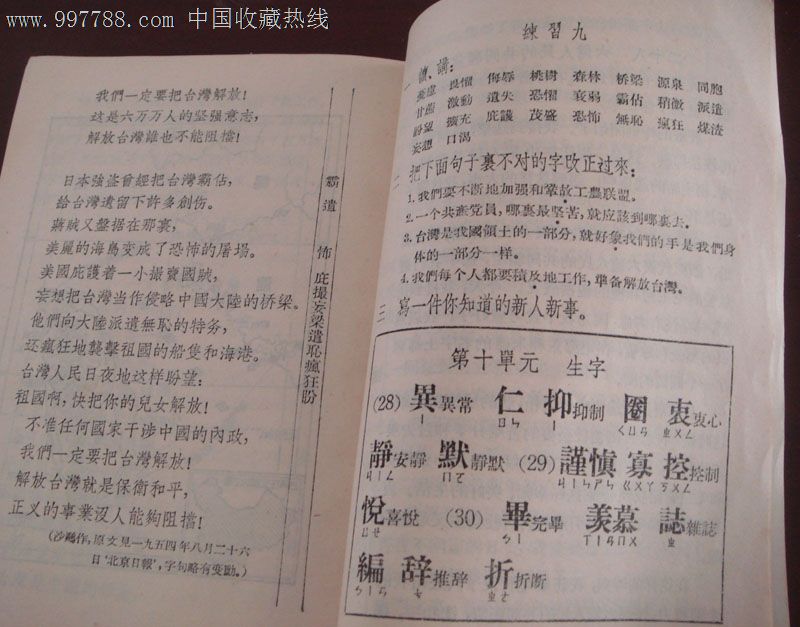 www.997788.com 中国收藏热线
我們一定要把台灣解放!
这是六万万人的坚强意志,
解放台灣誰也不能阻擋!
日本強盗曾經把台灣霸佔,
給台灣遺留下許多創伤。
蔣賊又盤据在那裏,
美麗的海島变成了恐怖的屠場。
美國庇護着一小撮賣國賊,
妄想把台灣当作侵略中國大陸的桥梁。
他們向大陸派遣無恥的特务,
还瘋狂地襲擊祖國的船隻和海港。
台灣人民日夜地这样盼望:
祖國啊,快把你的兒女解放!
不准任何國家干涉中國的內政,
我們一定要把台灣解放!
解放台灣就是保衛和平,
正义的事業沒人能夠阻擋!
(沙鷗作,原文見一九五四年八月二十六
日‘北京日報’,字句略有变動。)
霸遺 怖 庇撮妄梁遣恥瘋狂盼
練習九
一 讀、講:
畏懼 侮辱 桃樹 森林 桥梁 源泉 同胞
甘蔗 激動 遺失 恐懼 衰弱 霸佔 稍微 派遣
盼望 擴充 庇護 茂盛 恐怖 無恥 瘋狂 煤渣
妄想 口渴
二 把下面句子裏不对的字改正过來:
1. 我們要不断地加强和鞏故工農联盟。
2. 一个共產党員,哪裏最坚苦,就应該到哪裏去。
3. 台灣是我國領土的一部分,就好象我們的手是我們身
体的一部分一样。
4. 我們每个人都要積及地工作,準备解放台灣。
三 寫一件你知道的新人新事。
第十單元 生字
(28) 異異常 仁 抑抑制 圈 衷衷心
ㄧ ㄖㄣ ㄧ ㄑㄩㄢ ㄓㄨㄥ
靜安靜 默靜默 (29) 謹慎 寡 控控制
ㄐㄧㄥ ㄇㄛ ㄐㄧㄣㄕㄣ ㄍㄨㄚ ㄎㄨㄥ
悅喜悅 (30) 畢完畢 羨慕 誌雜誌
ㄩㄝ ㄅㄧ ㄒㄧㄢㄇㄨ ㄓ
編 辞推辞 折折断
ㄅㄧㄢ ㄘ ㄓㄜ